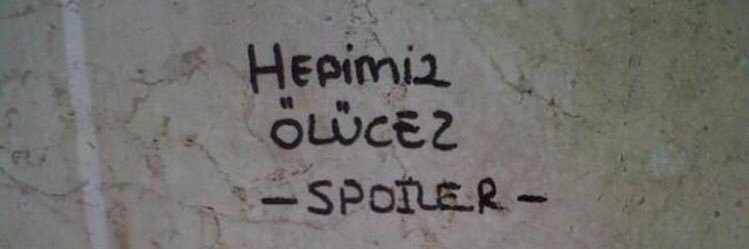 HEPimiz
ÖLÜCEZ
-SPOİLER-